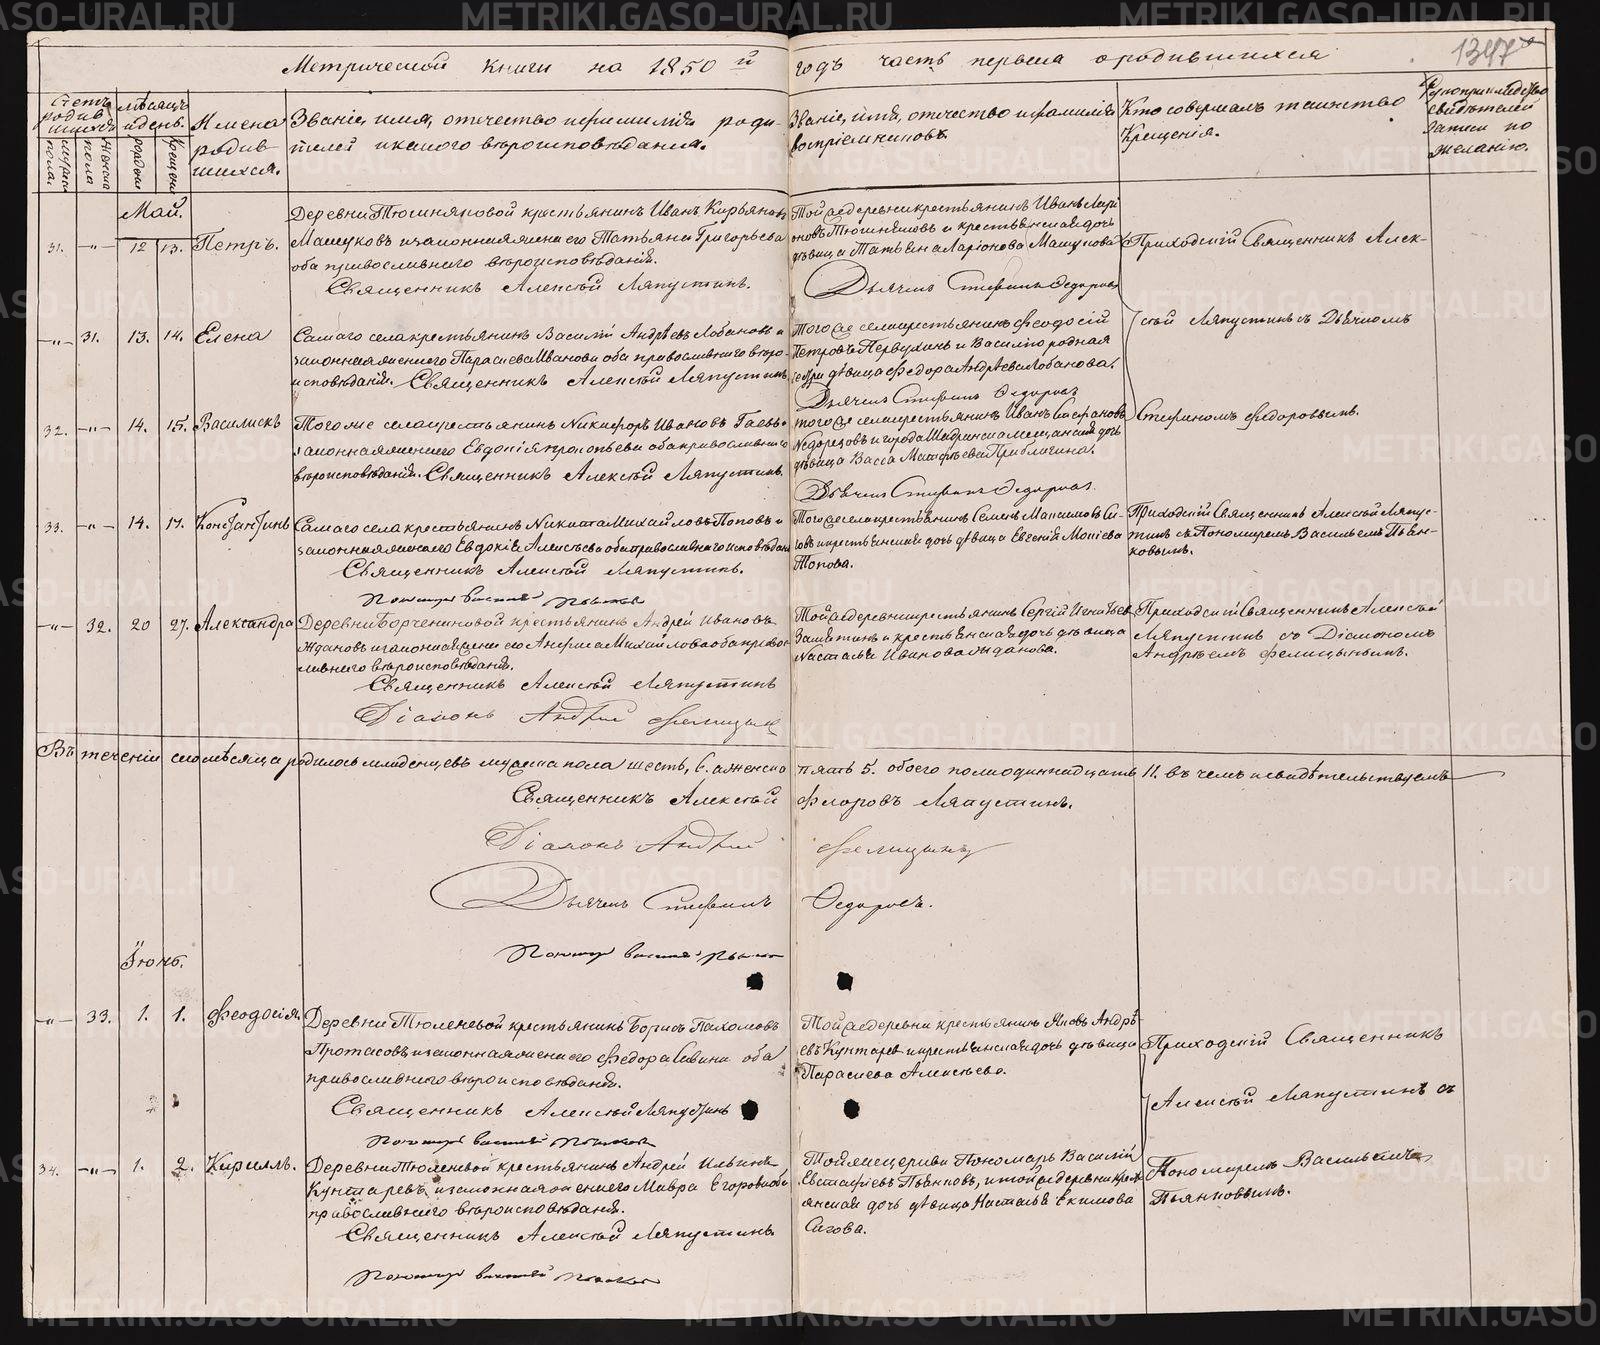 Метрической книги на 1850й годъ часть первая о родившихся
1347
Счетъ родившихся
мужеска пола.
женска пола
Мѣсяцъ и день.
рожденія
крещенія
Имена родившихся.
Званіе, имя, отечество и фамилія родителей и какого вѣроисповѣданія.
Званіе, имя, отечество и фамилія воспріемниковъ
Кто совершалъ таинство Крещенія.
Рукоприкладство свидѣтелей записи по желанію.
Май.
31. -"- 12 13. Петръ.
Деревни Тюшняковой крестьянинъ Иванъ Кирьяновъ
Машуковъ и законная жена его Татьяна Григорьева
оба православнаго вѣроисповѣданія.
Священникъ Алексѣй Ляпустинъ.
Той же деревни крестьянинъ Иванъ Ларі-
оновъ Тюшняковъ и крестьянская дочь
дѣвица Татьяна Ларіонова Машукова
Дьячекъ Стефанъ Ѳедоровъ
Приходскій Священникъ Алек-
сѣй Ляпустинъ съ Дьячкомъ
Стефаномъ Федоровымъ.
-"- 31. 13. 14. Елена
Самаго села крестьянинъ Василій Андрѣевъ Лобановъ и
законная жена его Параскева Иванова оба православнаго вѣро-
исповѣданія. Священникъ Алексѣй Ляпустинъ.
Того же села крестьянинъ Феодосій
Петровъ Первухинъ и Василію родная
сестра дѣвица Федора Андрѣева Лобанова.
Дьячекъ Стефанъ Ѳедоровъ
32. -"- 14. 15. Василискъ
Того же села крестьянинъ Никифоръ Ивановъ
законная жена его Евдокія Прокопьева оба православнаго
вѣроисповѣданія. Священникъ Алексѣй Ляпустинъ.
Того же села крестьянинъ Иванъ Стефановъ
и города Шадринска мещанская дочь
дѣвица Васса Матфѣева
Дьячекъ Стефанъ Ѳедоровъ.
33. -"- 14. 17. Константинъ
Самаго села крестьянинъ Никита Михайловъ Поповъ и
законная жена его Евдокія Алексѣева оба православнаго исповѣдан
Священникъ Алексѣй Ляпустинъ.
Пономарь Василій Пьянковъ
Того же села крестьянинъ Семенъ Максимовъ Си-
говъ и крестьянская дочь дѣвица Евгенія
Попова.
Приходскій Священникъ Алексѣй Ляпус-
тинъ съ Пономаремъ Васильемъ Пьян-
ковымъ.
-"- 32. 20 27. Александра
Деревни Борчениновой крестьянинъ Андрей Ивановъ
Ждановъ и законная жена его Анфиса Михайлова оба право-
славнаго вѣроисповѣданія.
Священникъ Алексѣй Ляпустинъ
Діаконъ Андрей Фелицынъ
Той же деревни крестьянинъ Сергій Игнатьев
Замятинъ и крестьянская дочь дѣвица
Настасья Иванова Жданова.
Приходскій Священникъ Алексѣй
Ляпустинъ съ Діакономъ
Андрѣемъ Фелицынымъ.
Въ теченіи сего мѣсяца родилось младенцевъ мужеска пола шесть, 6. а женска пять 5. обоего пола одиннадцать 11. въ чемъ и свидѣтельствуемъ
Священникъ Алексѣй Флоровъ Ляпустинъ.
Діаконъ Андрей Фелицынъ
Дьячекъ Стефанъ Ѳедоровъ.
Пономарь Василій Пьянковъ
Іюнь.
-"- 33. 1. 1. Феодосія.
Деревни Тюленевой крестьянинъ Борисъ Пахомовъ
Протасовъ и законная жена его Федора Савина оба
православнаго вѣроисповѣданія.
Священникъ Алексѣй Ляпустинъ
Пономарь Василій Пьянковъ
Той же деревни крестьянинъ Яковъ Андрѣ-
евъ Кунгаревъ и крестьянская дочь дѣвица
Параскева Алексѣева.
Приходскій Священникъ
Алексѣй Ляпустинъ съ
Пономаремъ Васильемъ
Пьянковымъ.
34. -"- 1. 2. Кириллъ.
Деревни Тюленевой крестьянинъ Андрей Ильинъ
Кунгаревъ, и законная жена его Мавра Егорова оба
православнаго вѣроисповѣданія.
Священникъ Алексѣй Ляпустинъ.
Пономарь Василій Пьянковъ
Той же церкви Пономарь Василій
Евстафіевъ Пьянковъ, и той же деревни кресть-
янская дочь дѣвица Настасья Екимова
Сигова.
METRIKI.GASO-URAL.RU